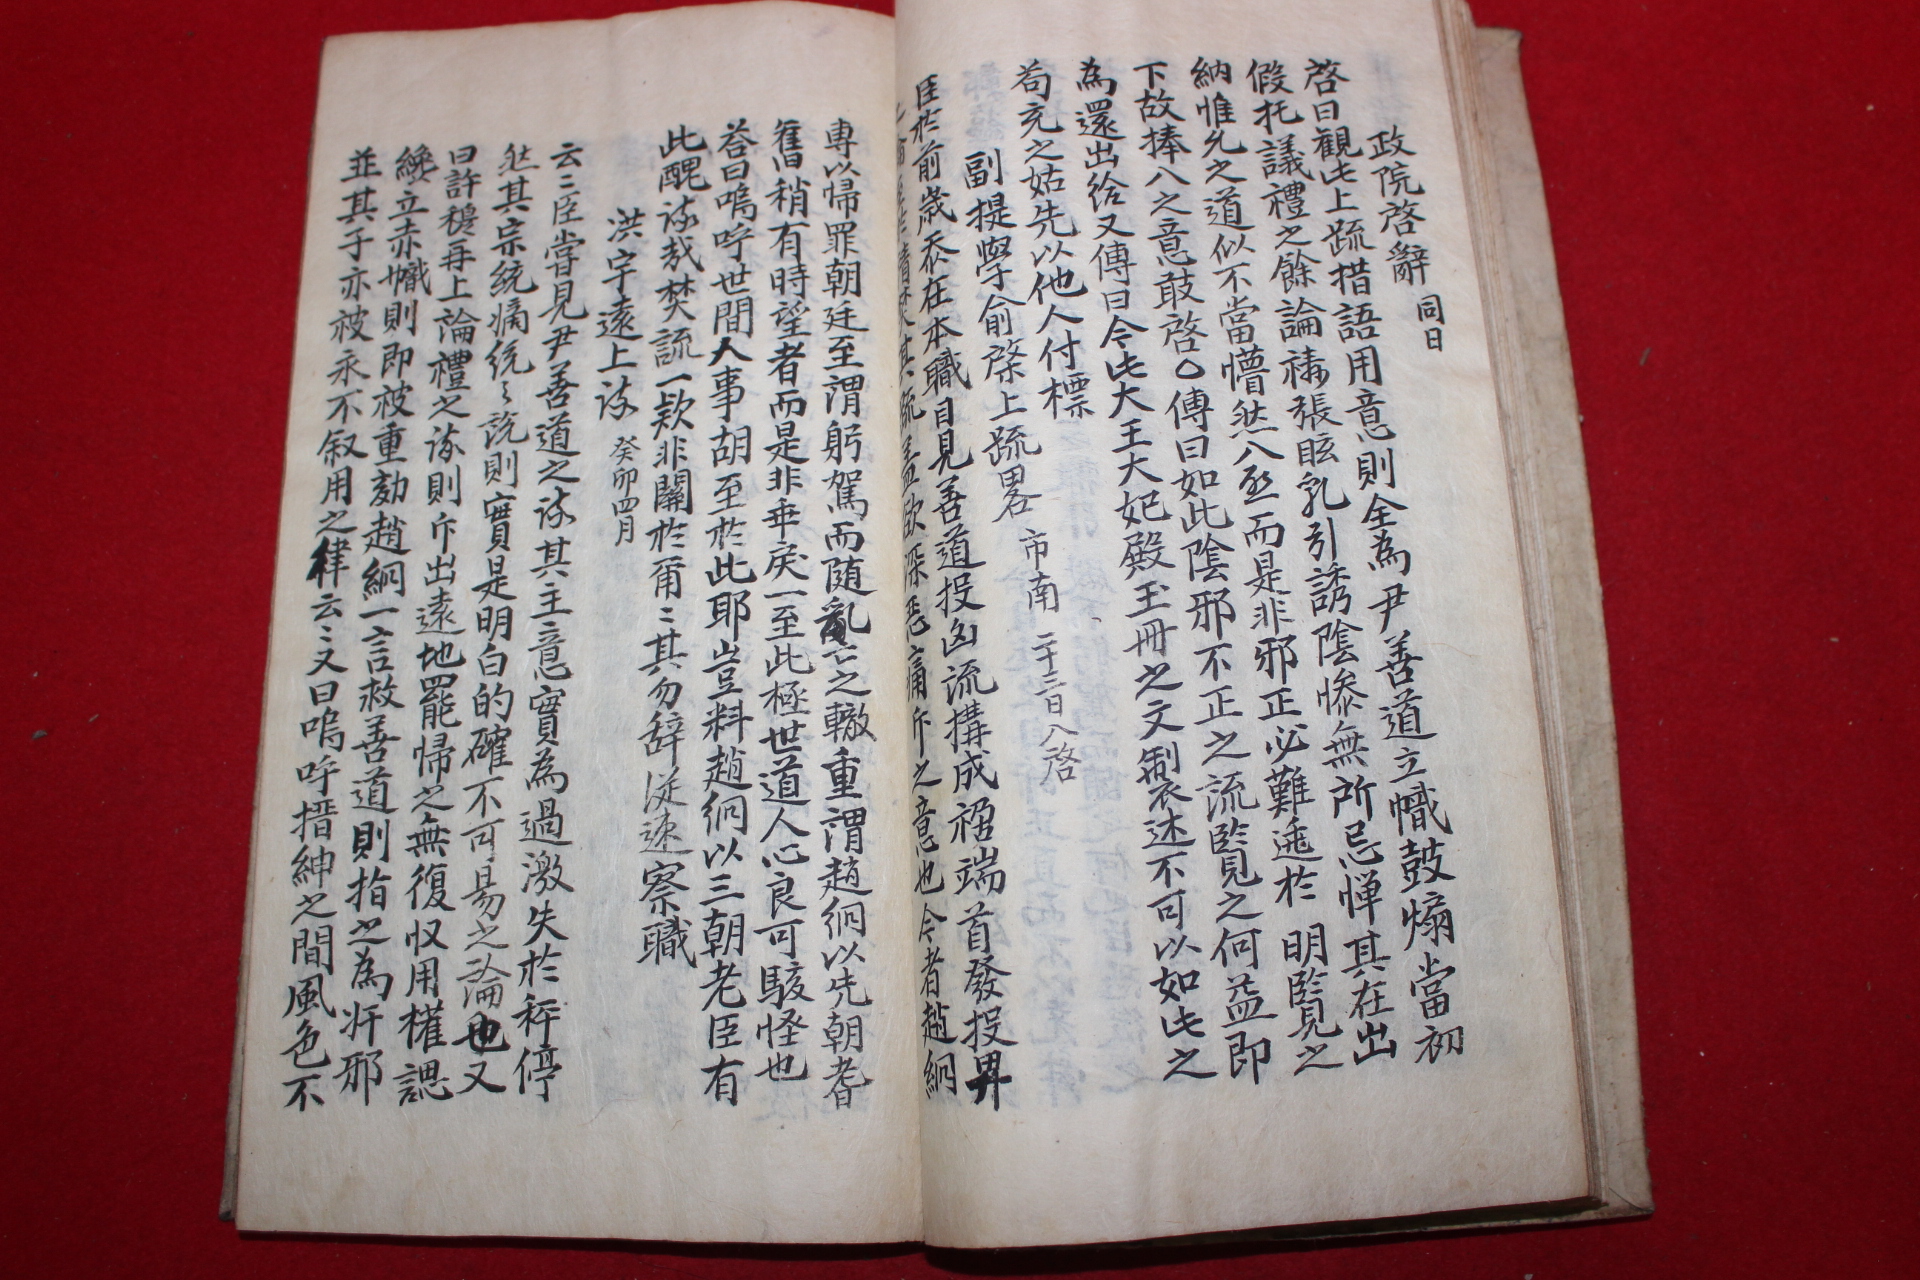 政院啓辭 同日
啓曰觀此上疏措語用意則全為尹善道立幟鼓煽當初
假托議禮之餘論禱張眩乱引誘陰慘無所忌憚其在出
納惟允之道似不當懵然八啓而是非邪正必難逃於 明監見之
下故捧八之意敢啓○傳曰如此陰邪不正之流監見之何益即
為還出給又傳曰今此大王大妃殿玉冊之文製述不可以如此之
苟充之姑先以他人付標
副提學俞棨上疏畧 市南 二十三日八啓
臣於前歲忝在本職目見善道投凶流構成禍端首發投畀
其疏盖欲深惡痛斥之意也今者趙絅
專以歸罪朝廷至謂躬駕而随亂亡之轍重謂趙絅以先朝耆
舊稍有時望者而是非乖戾一至此極世道人心良可駭怪也
荅曰嗚呼世間人事胡至於此耶豈料趙絅以三朝老臣有
此醜疏哉焚疏一欵非關於甭〻其勿辞從速察職
洪宇遠上疏 癸卯四月
云〻臣嘗見尹善道之疏其主意實為過激失於秤停
然其宗統嫡統之說則實是明白的確不可易之論也又
曰許穆再上論禮之疏則斥出遠地罷歸之無復收用權諰
纔立赤幟則即被重劾趙絅一言救善道則指之為奸邪
並其子亦被永不叙用之律云〻又曰嗚呼搢紳之間風色不